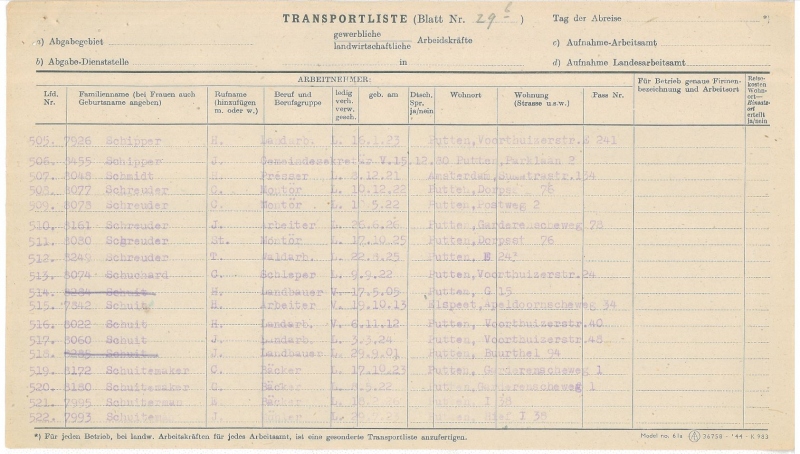 TRANSPORTLISTE (Blatt Nr. 29 6)
Tag der Abreise *)
a) Abgabegebiet
gewerbliche
landwirtschaftliche Arbeidskräfte
c) Aufnahme-Arbeitsamt
b) Abgabe-Dienststelle in
d) Aufnahme Landesarbeitsamt
ARBEITNEHMER:
Lfd. Nr. Familienname (bei Frauen auch Geburtsname angeben) Rufname (hinzufügen m. oder w.) Beruf und Berufsgruppe ledig verh. verw. gesch. geb. am Dtsch. Spr. ja/nein Wohnort Wohnung (Strasse u.s.w.) Pass Nr. Für Betrieb genaue Firmenbezeichnung und Arbeitsort Reisekosten Wohnort—Einsatzort erteilt ja/nein
505. 7926 Schipper H. Landarb. L. 16.1.23 Putten, Voorthuizerstr. E 241
506. 8455 Schipper J. Gemeindesekretär V. 15.12.80 Putten, Parklaan 2
507. 8048 Schmidt H. Presser L. 8.12.21 Amsterdam, Sumatrastr. 184
508. 8077 Schreuder C. Montör L. 10.12.22 Putten, Dorpsst 76
509. 8078 Schreuder C. Montör L. 5.22 Putten, Postweg 2
510. 8161 Schreuder J. Arbeiter L. 26.6.26 Putten, Garderenscheweg 78
511. 8080 Schreuder St. Montör L. 17.10.25 Putten, Dorpsst 76
512. 8249 Schreuder T. Waldarb. L. 22.8.25 Putten, E 243
513. 8074 Schuchard C. Schloper L. 9.9.22 Putten, Voorthuizerstr. 24
514. 8284 Schuit H. Landbauer V. 17.5.09 Putten, G 15
515. 7842 Schuit H. Arbeiter V. 19.10.13 Elspeet, Apeldoornscheweg 34
516. 8022 Schuit H. Landarb. V. 6.11.12 Putten, Voorthuizerstr. 40
517. 8060 Schuit J. Landarb. L. 3.3.24 Putten, Voorthuizerstr. 48
518. 8285 Schuit J. Landbauer L. 29.9.01 Putten, Buurthel 94
519. 8172 Schuitemaker C. Bäcker L. 17.10.23 Putten, Garderenscheweg 1
520. 8180 Schuitemaker C. Bäcker L. 8.5.22 Putten, Garderenscheweg 1
521. 7995 Bäcker L. Putten, I 38
522. 7993 J. L. I 38
*) Für jeden Betrieb, bei landw. Arbeitskräften für jedes Arbeitsamt, ist eine gesonderte Transportliste anzufertigen.
Model no. 61a 36758 - '44 - K 983